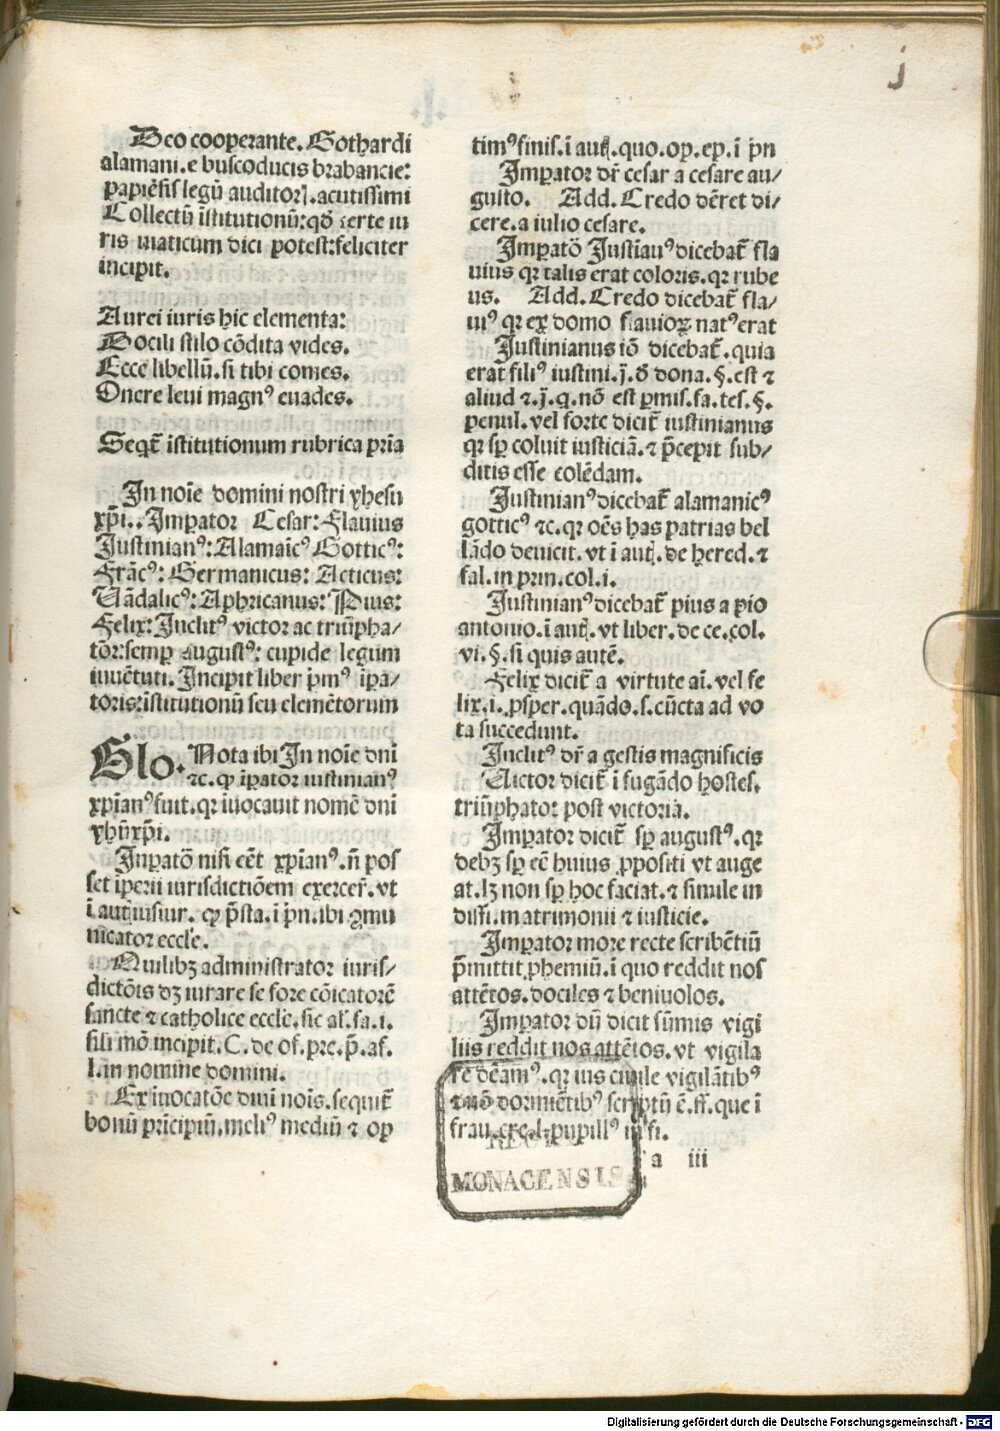 j
Deo cooperante. Gothardi
alamani. e buscoducis brabancie:
papiēsis legū auditorꝭ. acutissimi
Collectū īstitutionū: qđ certe iu
ris viaticum dici potest: feliciter
incipit.
Aurei iuris hic elementa:
Docili stilo cōdita vides.
Ecce libellū. si tibi comes.
Onere leui magnꝰ euades.
Seqͭ īstitutionum rubrica pria
In noīe domini nostri yhesu
xp̄i.. Imperator Cesar: Flauius
Justinianꝰ: Alamaīcꝰ Gotticꝰ:
Frācꝰ: Germanicus: Atticus:
Uādalicꝰ: Aphricanus: Pius:
Felix: Inclitꝰ victor ac triūpha/
tōr: semꝑ augustꝰ: cupide legum
iuuētuti. Incipit liber pͥmꝰ īpa/
toris: īstitutionū seu elemētorum
Glo. Nota ibi In noīe dn̄i
⁊c. ꝙ īpator iustinianꝰ
xp̄ianꝰ fuit. qꝛ īuocauit nomē dn̄i
yhū xp̄i.
Inpatō nisi eēt xp̄ianꝰ. n̄ pos
set īperii iurisdictiōem exercer̄. vt
ꝙ p̄sta. ī p̄n. ibi ꝯmu
nicator eccl̄e.
Quilibꝫ administrator iuris/
dictōis dꝫ iurare se fore cōicatorē
sancte ⁊ catholice eccl̄e. sic al̄. fa. i.
sili mō incipit. C. de of. pre. p̄. af.
l. in nomine domini.
Ex īuocatōe diuī noīs. sequit᷑
bonū prīcipiū. meliꝰ mediū ⁊ op
timꝰ finis. ī autͭ. quo. op. ep. ī p̄n
Imperator dr̄ cesar a cesare au/
gusto. Add. Credo dēret di/
cere. a iulio cesare.
Imp̄atō Justīanꝰ dicebat᷑ fla
uius qꝛ talis erat coloris. qꝛ rube
us. Add. Credo dicebat᷑ fla/
uiꝰ qꝛ ex domo flauioꝝ natꝰ erat
Justinianus iō dicebat᷑. quia
erat filiꝰ iustini. j. ō dona. §. est ⁊
aliud ⁊. j. q. nō est pmis. fa. tes. §.
penul. vel forte dicit᷑ iustinianus
qꝛ sꝑ coluit iusticiā. ⁊ p̄cepit sub/
ditis esse colēdam.
Justinianꝰ dicebat᷑ alamanicꝰ
gotticꝰ ⁊c. qꝛ oēs has patrias bel
lādo deuicit. vt ī autͭ. de hered. ⁊
fal. in prin. col. i.
Justinianꝰ dicebat᷑ pius a pio
antonio. ī autͭ. vt liber. de ce. col.
vi. §. si quis autē.
Felix dicit᷑ a virtute aī. vel fe
lix. i. ꝓsper. quādo. s. cūcta ad vo
ta succedunt.
Inclitꝰ dr̄ a gestis magnificis
Uictor dicit᷑ ī fugādo hostes.
triūphator post victoriā.
Imperator dicit᷑ sꝑ augustꝰ. qꝛ
debꝫ sꝑ eē huius ꝓpositi vt auge
at. lꝫ non sꝑ hoc faciat. ⁊ simile in
diffi. matrimonii ⁊ iusticie.
Imperator more recte scribētiū
p̄mittit ꝓhemiū. ī quo reddit nos
attētos. dociles ⁊ beniuolos.
Imperator dū dicit sūmis vigi
liis reddit nos attētos. vt vigila
re dēamꝰ. qꝛ ius ciuile vigilātibꝰ
⁊ nō dormiētibꝰ scriptū ē. ff. que ī
frau. cre. l. pupillꝰ in fi.
a iii
MONACENSIS
Digitalisierung gefördert durch die Deutsche Forschungsgemeinschaft - DFG